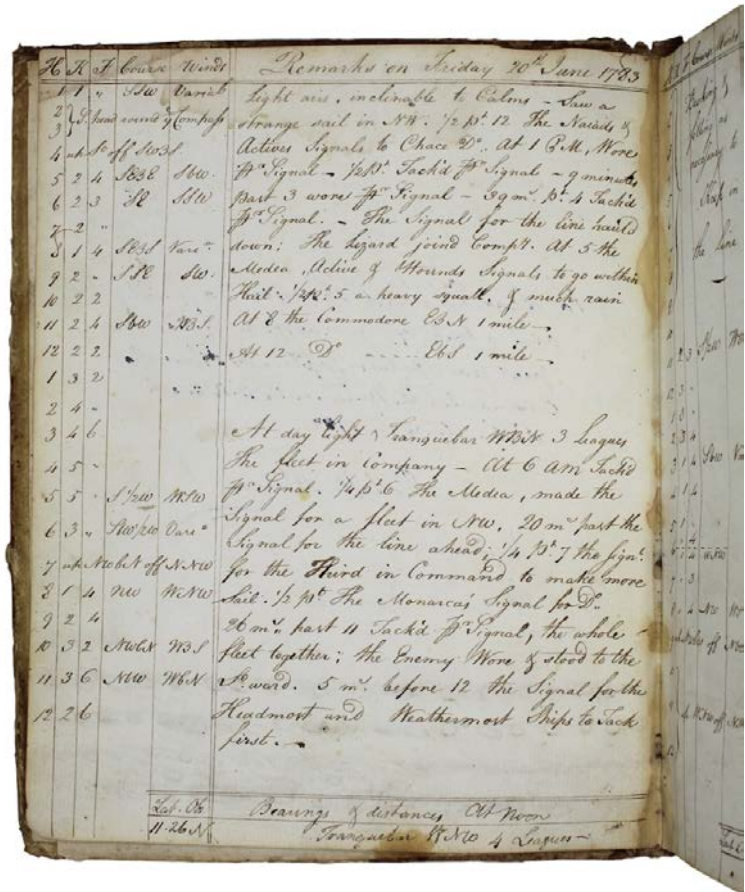 H K F Course Winds Remarks on Friday 20th June 1783
1 1 " SSW Variab Light airs, inclinable to Calms – Saw a
2 } Sp. head round ye Compass strange sail in NW. 1/2 pt. 12 The Naiads &
3
4 up So off SWBS Actives Signals to Chace Do. At 1 PM, Wore
5 2 4 SEBE SbW. pr Signal – 1/2 pt. Tack'd pr Signal – 9 minutes
6 2 3 SE SSW past 3 wore pr Signal – 39 ms. pt. 4 Tack'd
7 2 " pr Signal. – The Signals for the line haul'd
8 1 4 SEBS Vare. down: The Lizard joind Compy. At 5 the
9 2 " SSE SW. Medea, Active & Hounds Signals to go within
10 2 2 Hail: 1/2 pt. 5 a heavy squall, & much rain
11 2 4 SbW WBS. At 8 the Commodore EBN 1 mile –
12 2 2 At 12 Do EbS 1 mile –
1 3 2
2 4 "
3 4 6 At day light Tranquebar WBN 3 Leagues
4 5 " The fleet in Company – At 6 am Tack'd
5 5 " S 1/2 W WSW pr Signal. 1/4 pt. 6 The Medea, made the
6 3 " SW 1/2 W Vare Signal for a fleet in NW. 20 ms past the
7 up NWbN off NNW Signal for the line ahead; 1/4 pt. 7 the Signl.
8 1 4 NW WNW for the Third in Command to make more
9 2 4 Sail. 1/2 pt The Monarca's Signal for Do.
10 3 2 NWbN WBS 26 ms. past 11 Tack'd pr Signal, the whole
11 3 6 NbW WbN fleet together; the Enemy Wore & stood to the
12 2 6 So. ward. 5 ms. before 12 the Signal for the
Headmost and Weathermost Ships to Tack
first. –
Lat. Ob. Bearings & distances At Noon
11.26 N Tranquebar NW 4 Leagues –
Course Winds
in
the line